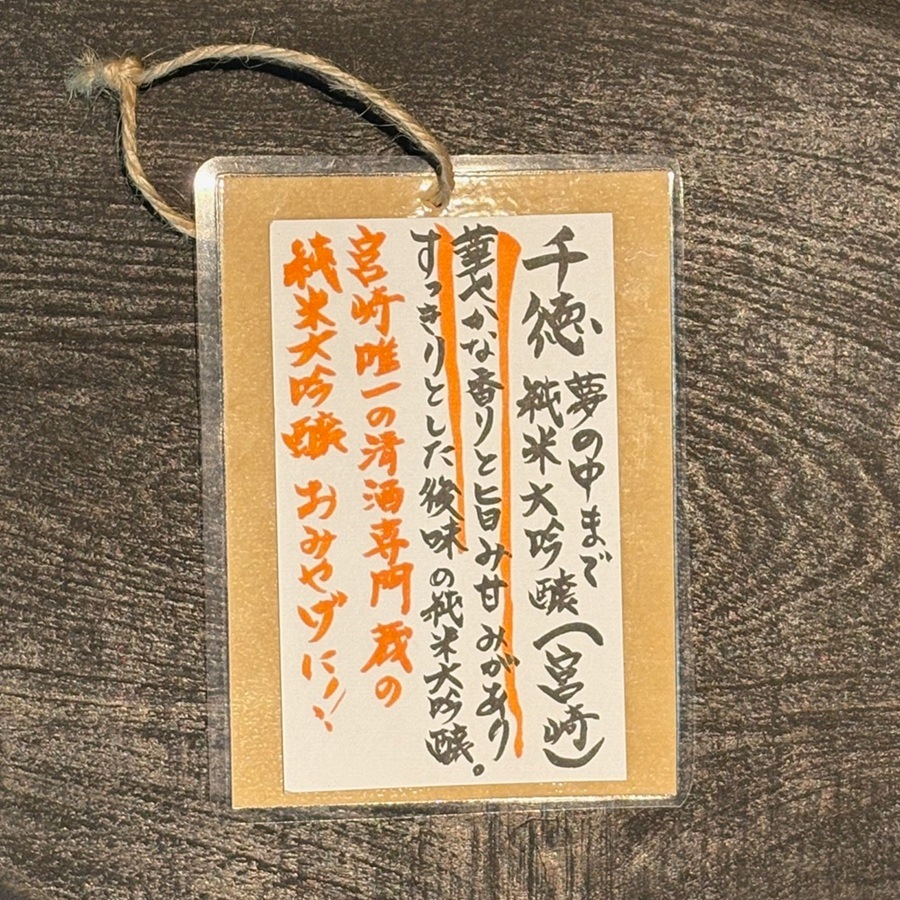 千徳 夢の中まで
純米大吟醸(宮崎)
華やかな香りと旨み甘みがあり
すっきりとした後味の純米大吟醸。
宮崎唯一の清酒専門蔵の
純米大吟醸 おみやげに!!